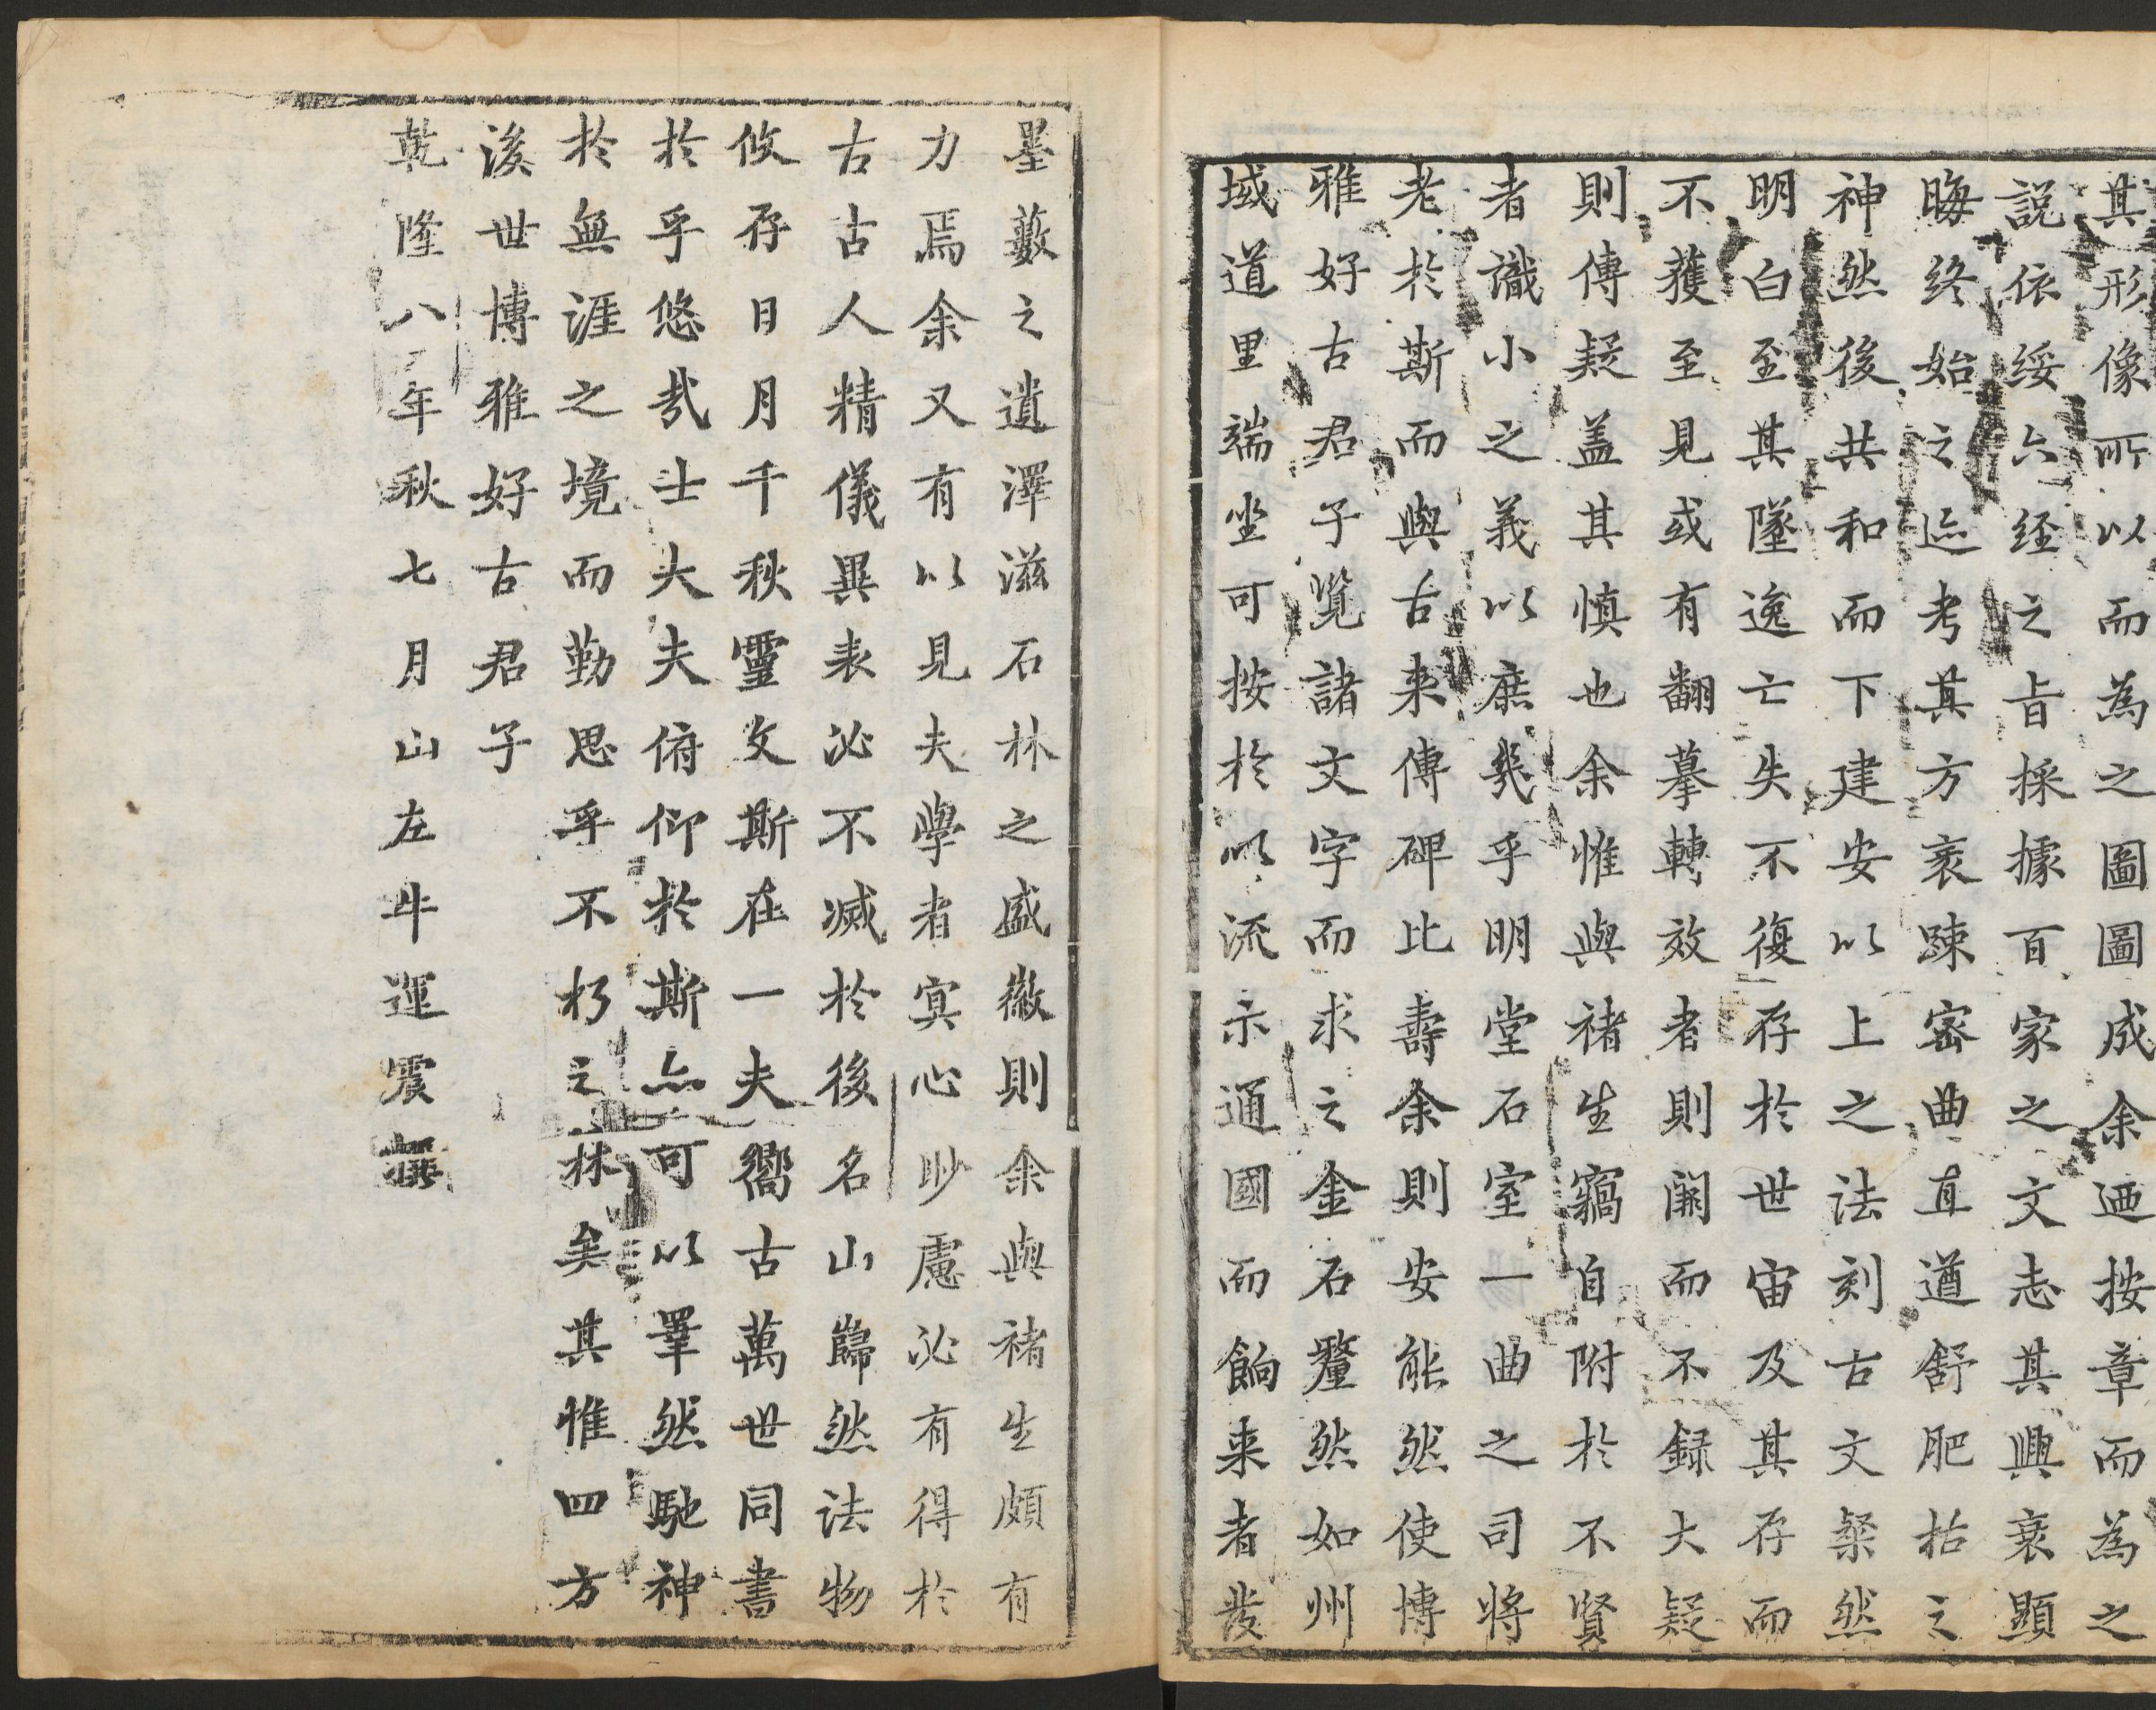 其形像所以而為之圖圖成余迺按章而為之
説依綏六经之旨採據百家之文志其興衰顯
晦终始之迹考其方袤踈宻曲直遒舒肥枯之
神然後共和而下建安以上之法刻古文粲然
明白至其墜逸亡失不復存於世宙及其存而
不獲至見或有翻摹轉效者則闕而不録大疑
則傳疑盖其慎也余惟與褚生竊自附於不賢
者識小之義以庶幾乎明堂石室一曲之司將
老於斯而與古来傳碑比壽余則安能然使博
雅好古君子覧諸文字而求之金石釐然如州
域道里端坐可按於以流示通國而餉来者發
墨藪之遺澤滋石林之盛徽則余與褚生頗有
力焉余又有以見夫學者寞心眇慮必有得於
古古人精儀異表必不滅於後名山巋然法物
攸存日月千秋靈文斯在一夫嚮古萬世同書
於乎悠哉士大夫俯仰於斯亦可以睪然馳神
於無涯之境而勤思乎不朽之林矣其惟四方
後世博雅好古君子
乾隆八年秋七月山左牛運震撰